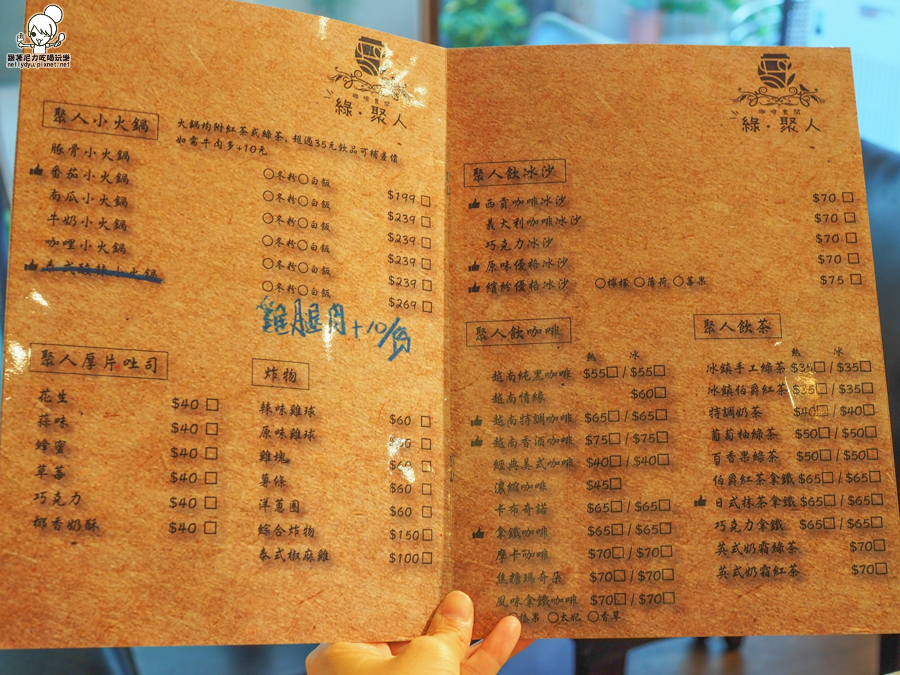 跟著尼力吃喝玩樂
nellydyu.pixnet.net
咖啡食間
綠·聚人
聚人小火鍋
火鍋均附紅茶或綠茶,超過35元飲品可補差價
如需牛肉多+10元
豚骨小火鍋 ○冬粉○白飯 $199
番茄小火鍋 ○冬粉○白飯 $239
南瓜小火鍋 ○冬粉○白飯 $239
牛奶小火鍋 ○冬粉○白飯 $239
咖哩小火鍋 ○冬粉○白飯 $239
泰式酸辣小火鍋 ○冬粉○白飯 $269
雞腿肉+10/份
聚人厚片吐司
花生 $40
蒜味 $40
蜂蜜 $40
草莓 $40
巧克力 $40
椰香奶酥 $40
炸物
辣味雞球 $60
原味雞球 $60
雞塊 $60
薯條 $60
洋蔥圈 $60
綜合炸物 $150
泰式椒麻雞 $100
咖啡食間
綠·聚人
聚人飲冰沙
西貢咖啡冰沙 $70
義大利咖啡冰沙 $70
巧克力冰沙 $70
原味優格冰沙 $70
繽紛優格冰沙 ○檸檬 ○薄荷 ○蘋果 $75
聚人飲咖啡
熱 冰
越南純黑咖啡 $55 / $55
越南情緣 $60
越南特調咖啡 $65 / $65
越南香酒咖啡 $75 / $75
經典美式咖啡 $40 / $40
濃縮咖啡 $45
卡布奇諾 $65 / $65
拿鐵咖啡 $65 / $65
摩卡咖啡 $70 / $70
焦糖瑪奇朵 $70 / $70
風味拿鐵咖啡 $70 / $70
○榛果 ○太妃 ○香草
聚人飲茶
熱 冰
冰鎮手工綠茶 $35 / $35
冰鎮伯爵紅茶 $35 / $35
特調奶茶 $40 / $40
葡萄柚綠茶 $50 / $50
百香果綠茶 $50 / $50
伯爵紅茶拿鐵 $65 / $65
日式抹茶拿鐵 $65 / $65
巧克力拿鐵 $65 / $65
英式奶霜綠茶 $70
英式奶霜紅茶 $70